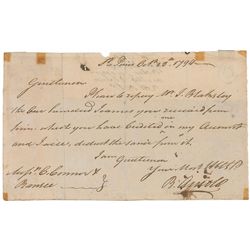 St. Pierre Octr. 20th. 1794
Gentlemen
Please to repay Mr. J. Blakesley
the One hundred Joannes you received from
him, which you have Credited in my Account
one
and I will deduct the same from it.
I am
Gentlemen
Your Most
Messrs. C. Connor &
B. Arnold